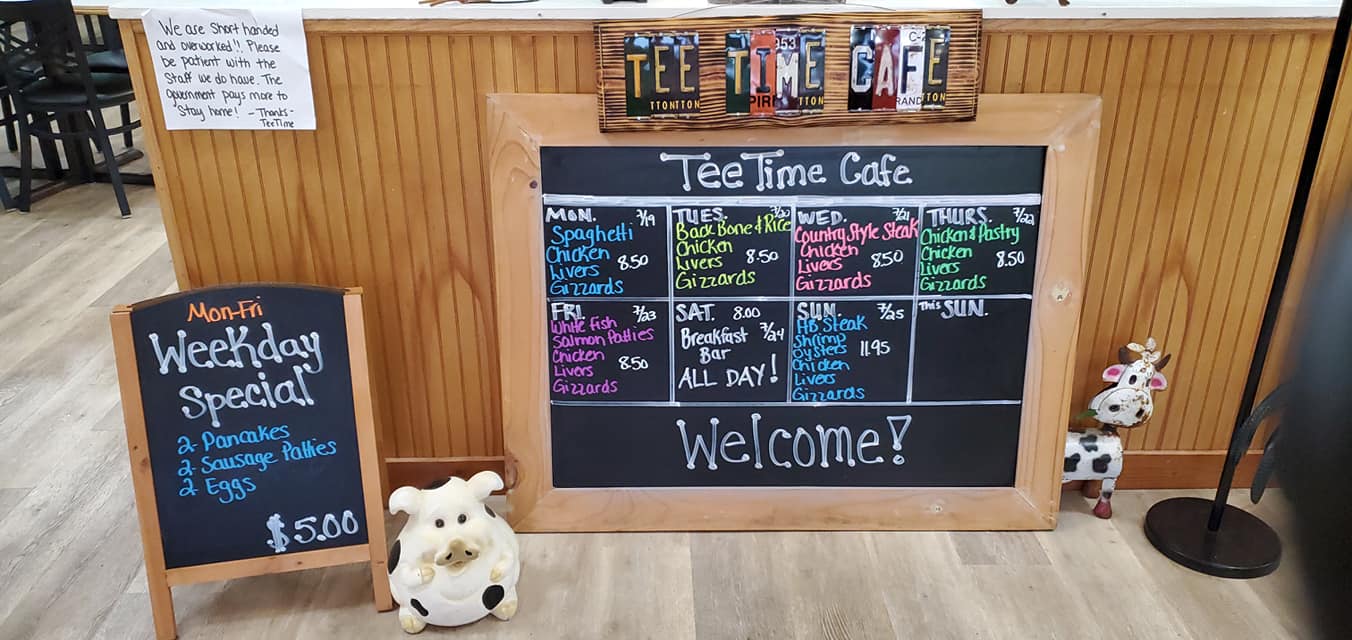 We are short handed
and overworked!! Please
be patient with the
Staff we do have. The
government pays more to
stay home! - Thanks -
TeeTime
TEE TIME CAFE
Tee Time Cafe
MON. 7/19
Spaghetti
Chicken
Livers 8.50
Gizzards
TUES. 7/20
Back Bone & Rice
Chicken
Livers 8.50
Gizzards
WED. 7/21
Country Style Steak
Chicken
Livers 8.50
Gizzards
THURS. 7/22
Chicken & Pastry
Chicken
Livers 8.50
Gizzards
FRI. 7/23
White Fish
Salmon Patties
Chicken
Livers 8.50
Gizzards
SAT. 8.00
Breakfast 7/24
Bar
ALL DAY!
SUN. 7/25
HB Steak
Shrimp
Oysters 11.95
Chicken
Livers
Gizzards
This SUN.
Welcome!
Mon-Fri
Weekday
Special
2- Pancakes
2- Sausage Patties
2 Eggs
$5.00